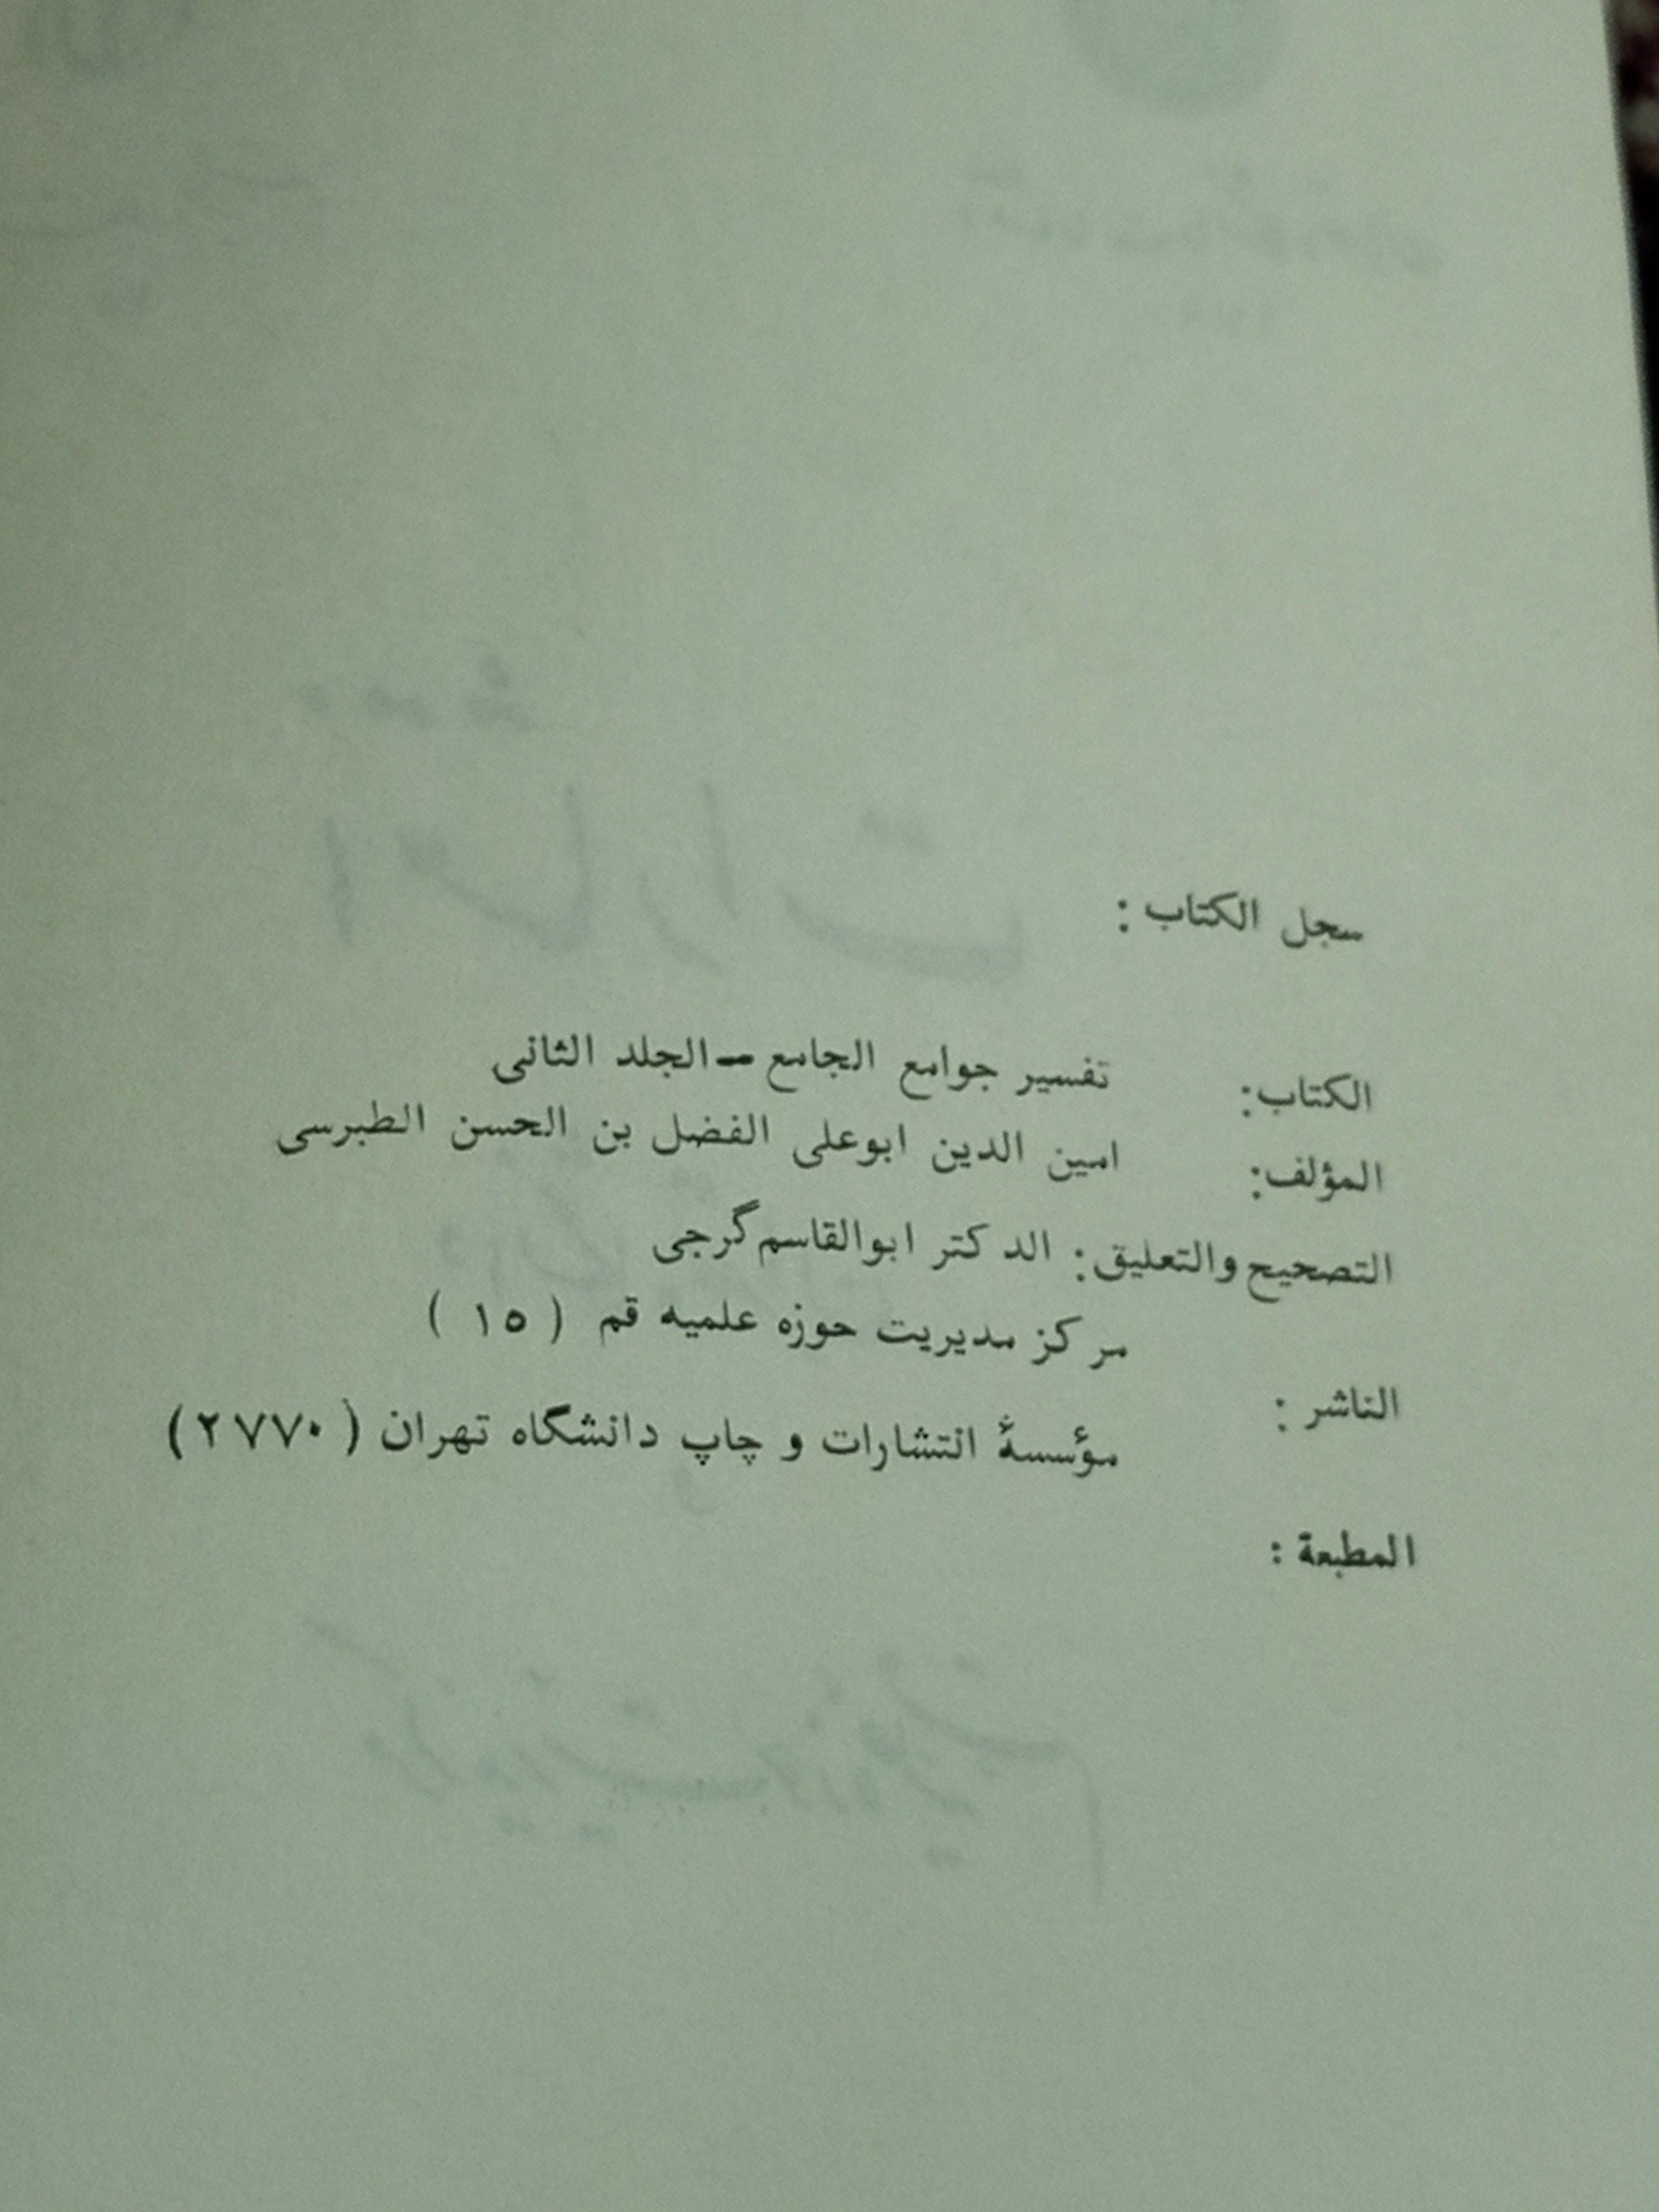 سجل الكتاب :
الكتاب: تفسير جوامع الجامع ــ الجلد الثانى
المؤلف: امين الدين ابوعلى الفضل بن الحسن الطبرسى
التصحيح والتعليق: الدكتر ابوالقاسم گرجى
مركز مديريت حوزه علميه قم ( ١٥ )
الناشر :
مؤسسهٔ انتشارات و چاپ دانشگاه تهران ( ٢٧٧٠ )
المطبعة :